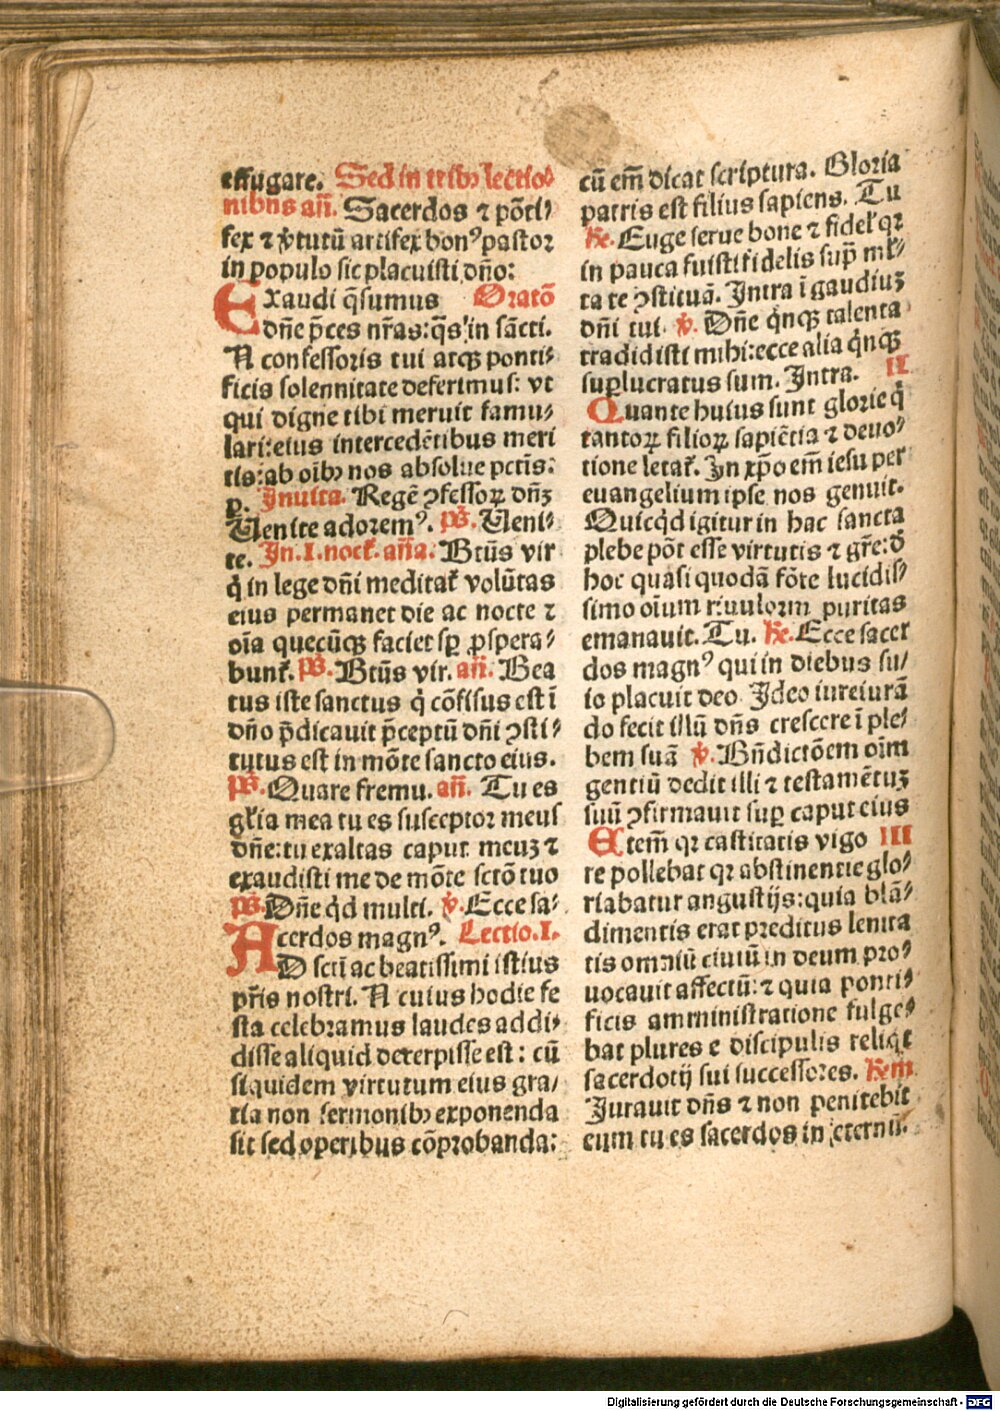 effugare. Sed in tribꝫ lectio⸗
nibus añ. Sacerdos ⁊ põti⸗
fex ⁊ v̾tutũ artifex bonꝰ pastor
in populo sic placuisti dño:
Exaudi q̃sumus Oratõ
dñe p̃ces nr̃as: q̃s in sãcti.
N confessoris tui atqꝫ ponti⸗
ficis solennitate deferimus: vt
qui digne tibi meruit famu⸗
lari: eius intercedẽtibus meri
tis: ab oĩbꝫ nos absolue pctĩs.
p. Inuita. Regẽ ꝯfessoꝝ dñꝫ
Uenite adoremꝰ. ps̃. Ueni⸗
te. In .I. noct̃. aña. Btũs vir
q̇ in lege dñi meditat̃ volũtas
eius permanet die ac nocte ⁊
oĩa quecũqꝫ faciet sp̱ ꝓspera⸗
bunt̃. ps̃. Btũs vir. añ. Bea
tus iste sanctus q̇ cõfisus est ĩ
dño p̃dicauit p̃ceptũ dñi ꝯsti⸗
tutus est in mõte sancto eius.
ps̃. Quare fremu. añ. Tu es
gl̃ia mea tu es susceptor meus
dñe: tu exaltas caput meuꝫ ⁊
exaudisti me de mõte sctõ tuo
ps̃. Dñe q̇d multi. v̾. Ecce sa⸗
cerdos magnꝰ. Lectio .I.
AD sctĩ ac beatissimi istius
pr̃is nostri. N cuius hodie fe
sta celebramus laudes addi⸗
disse aliquid decerpisse est: cũ
siquidem virtutum eius gra⸗
tia non sermonibꝫ exponenda
sit sed operibus cõprobanda:
cũ em̃ dicat scriptura. Gloria
patris est filius sapiens. Tu
Re. Euge serue bone ⁊ fidel̃ qꝛ
in pauca fuisti fidelis sup̱ ml̃⸗
ta te ꝯstituã. Intra ĩ gaudiuꝫ
dñi tui. v̾. Dñe q̇nqꝫ talenta
tradidisti mihi: ecce alia q̇nqꝫ
sup̱lucratus sum. Intra. II
Quante huius sunt glorie q̇
tantoꝝ filioꝝ sapiẽtia ⁊ deuo⸗
tione letat̃. In xp̃o em̃ iesu per
euangelium ipse nos genuit.
Quicq̇d igitur in hac sancta
plebe põt esse virtutis ⁊ gr̃e: d̕
hoc quasi quodã fõte lucidis⸗
simo oĩum riuulorum puritas
emanauit. Tu. Re. Ecce sacer
dos magnꝰ qui in diebus su⸗
is placuit deo. Ideo iureiurã
do fecit illũ dñs crescere ĩ ple⸗
bem suã v̾. Bñdictõem oĩm
gentiũ dedit illi ⁊ testamẽtuꝫ
suũ ꝯfirmauit sup̱ caput eius
Etem̃ qꝛ castitatis vigo III
re pollebat qꝛ abstinentie glo⸗
riabatur angustijs: quia blã⸗
dimentis erat preditus lenita
tis omniũ ciuiũ in deum pro⸗
uocauit affectũ: ⁊ quia ponti⸗
ficis amministratione fulge⸗
bat plures e discipulis reliq̇t
sacerdotij sui successores. Rem̃
Iurauit dñs ⁊ non penitebit
eum tu es sacerdos in eternũ.
Digitalisierung gefördert durch die Deutsche Forschungsgemeinschaft - DFG